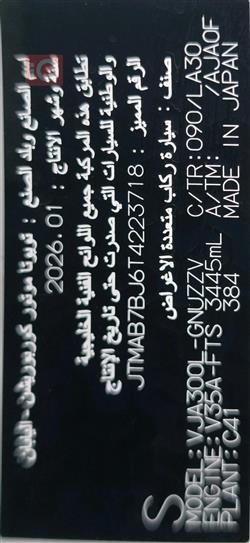 اسم الصانع وبلد الصنع : تويوتا موتور كوربوريشن - اليابان
سنة وشهر الإنتاج : 2026.01
تطابق هذه المركبة جميع اللوائح الفنية الخليجية
والوطنية للسيارات التي صدرت حتى تاريخ الإنتاج
الرقم المميز : JTMAB7BJ6T4223718
صنف : سيارة ركاب متعددة الاغراض
S
MODEL: VJA300L-GNUZZV C/TR: 090/LA30
ENGINE: V35A-FTS 3445mL A/TM: /AJA0F
PLANT: C41 384 MADE IN JAPAN